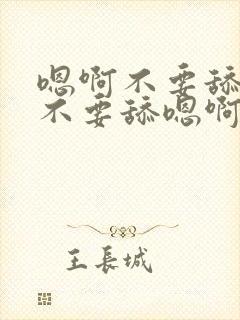 嗯啊不要舔
不要舔嗯啊
王長城